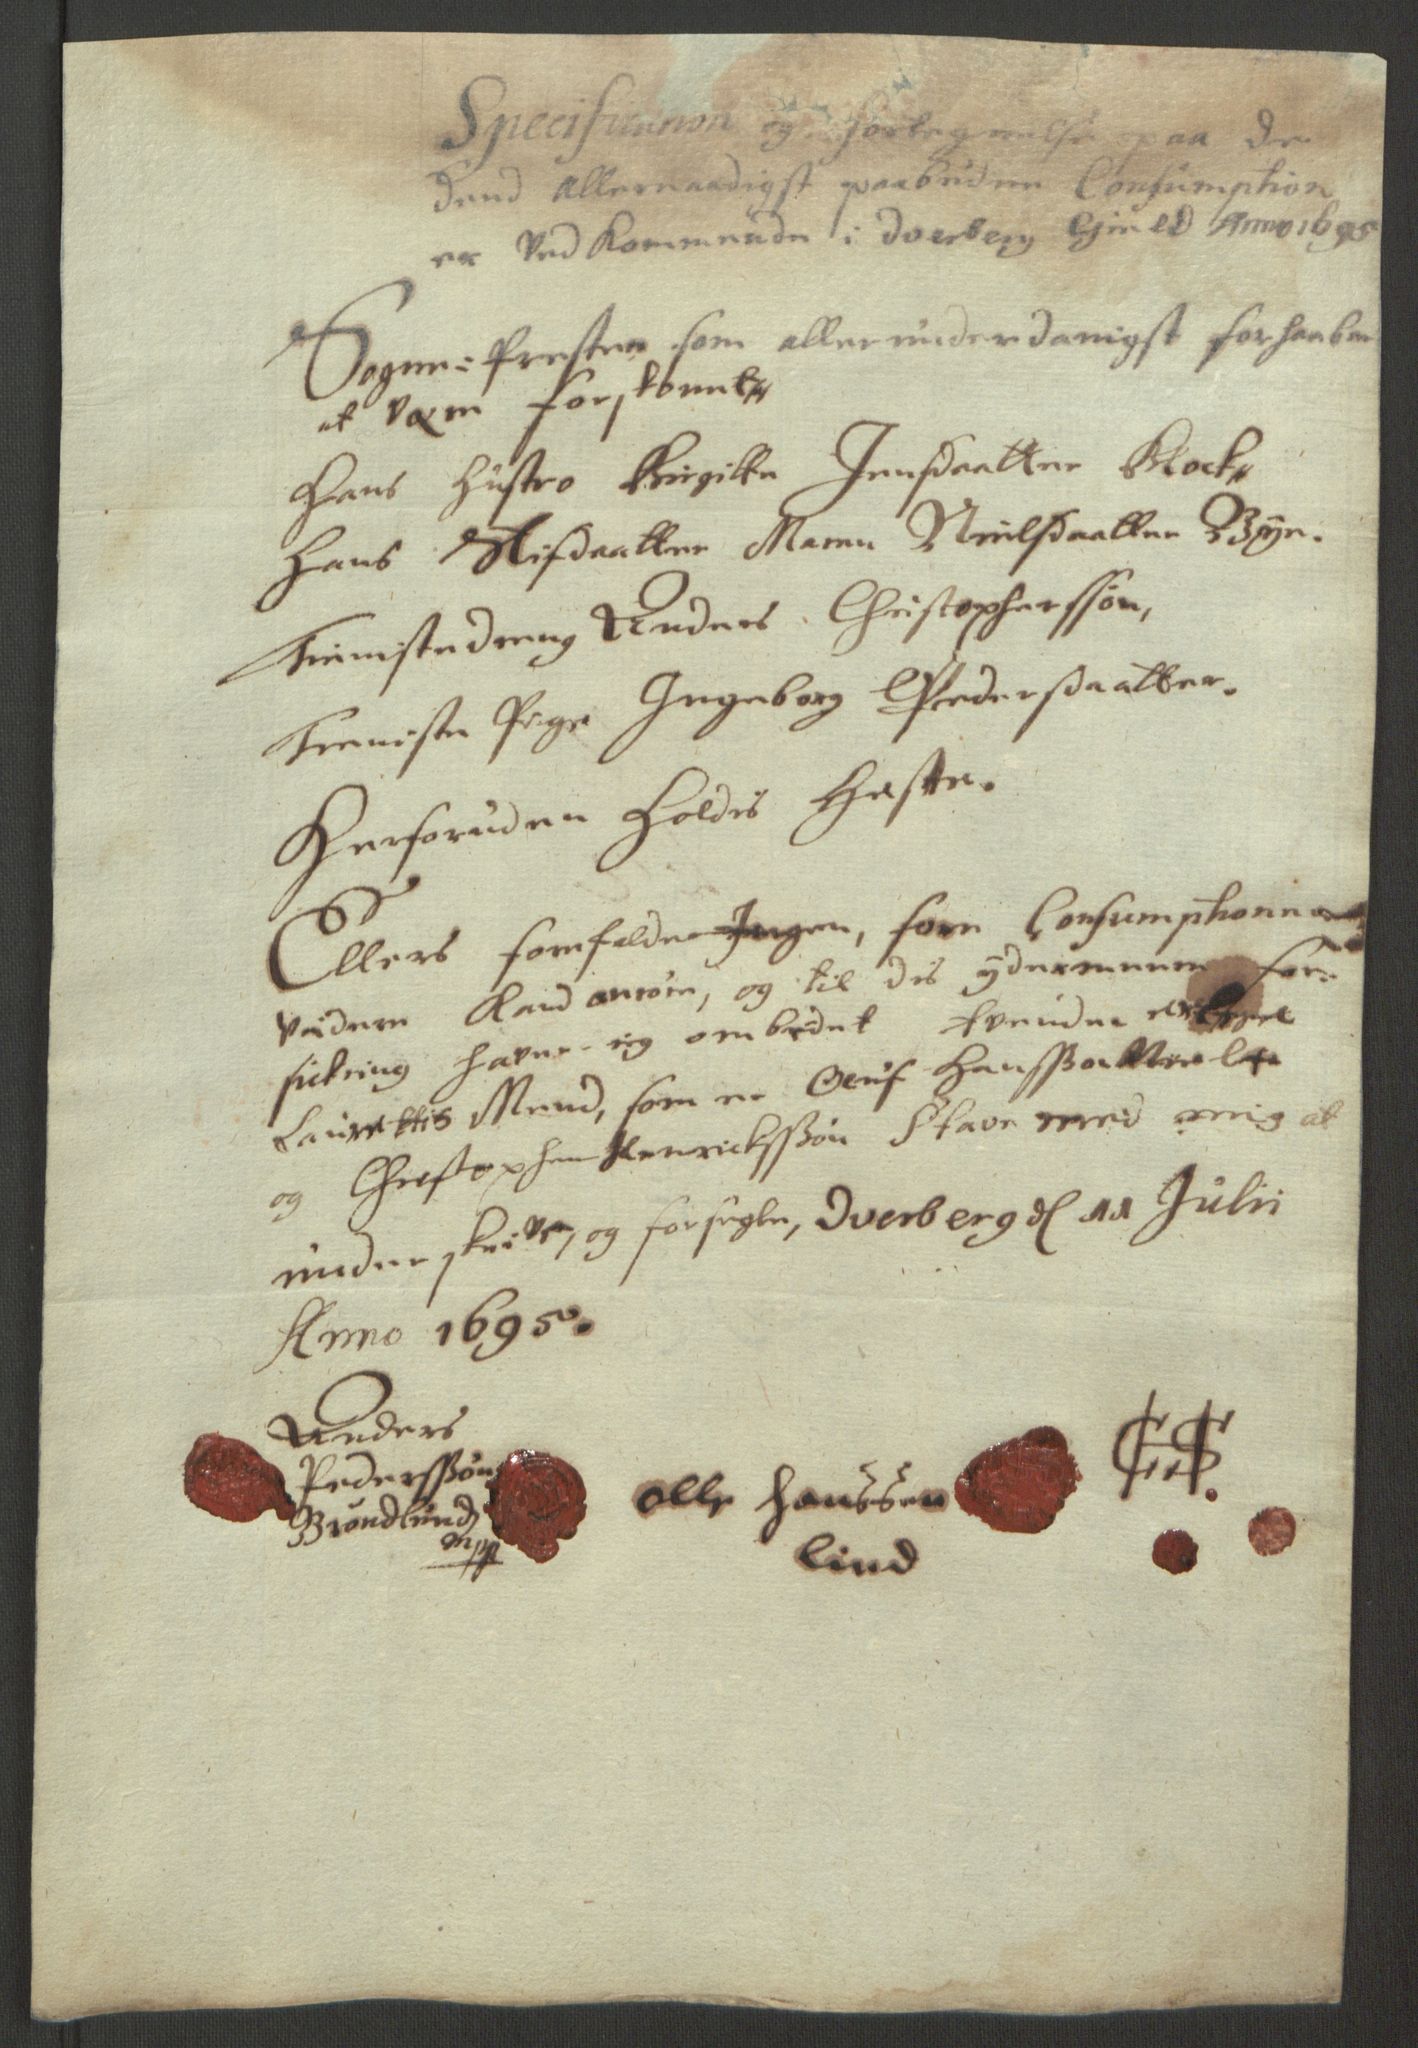 Specification og fortegnelse paa de
dend allernaadigst paabudne Consumption
er vedkommende i Dverberg Gield Anno 1695
Sogne-Presten som allerunderdanigst forhaaber
at være forskonet,
Hans Hustro Birgitte Jensdaatter Klock,
Hans Stifdaatter Maren Nielsdaatter Bye.
Tienistedreng Anders Christopherssøn,
Tieniste Pige Ingeborg Pedersdaatter.
Herforuden holdis Heste.
Ellers forefalder Ingen, som Consumptionen
videre kand anröre, og til dis ydermeere for-
sickring hafver ieg ombedet tvende
Laurettis Mend, som er Oluf Hanssøn
og Christopher Henrickssøn Stave med mig at
underskrive, og forsegle, Dverberg d 11 Julii
Anno 1695.
Anders
Pederssøn
Brøndlund
mpp
olle hanssen
lind
CHS.